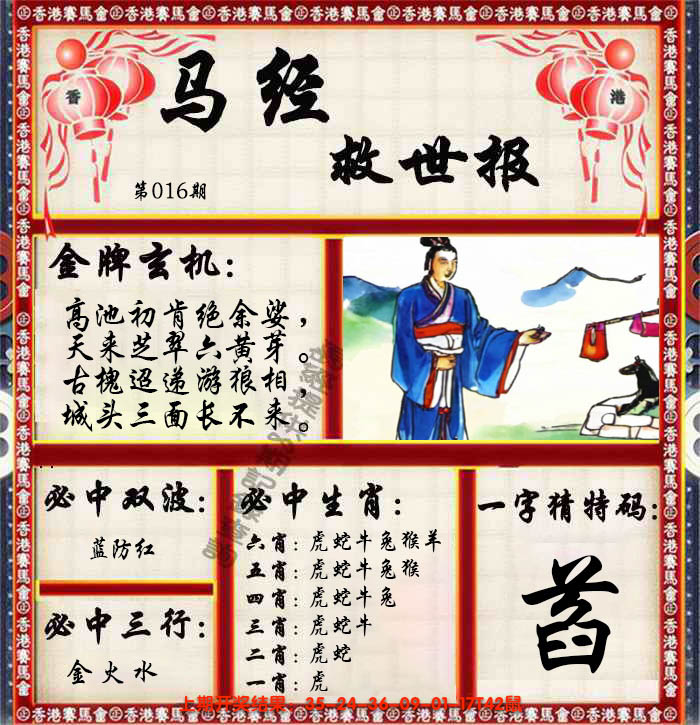 香港賽馬會
香 港
马经
救世报
第016期
金牌玄机：
高池初肯绝余娑，
天来芝翠六黄芽。
古槐迢递游狼相，
城头三面长不来。
必中双波：
蓝防红
必中三行：
金火水
必中生肖：
六肖：虎蛇牛兔猴羊
五肖：虎蛇牛兔猴
四肖：虎蛇牛兔
三肖：虎蛇牛
二肖：虎蛇
一肖：虎
一字猜特码：
上期开奖结果：35-24-36-09-01-17T42鼠